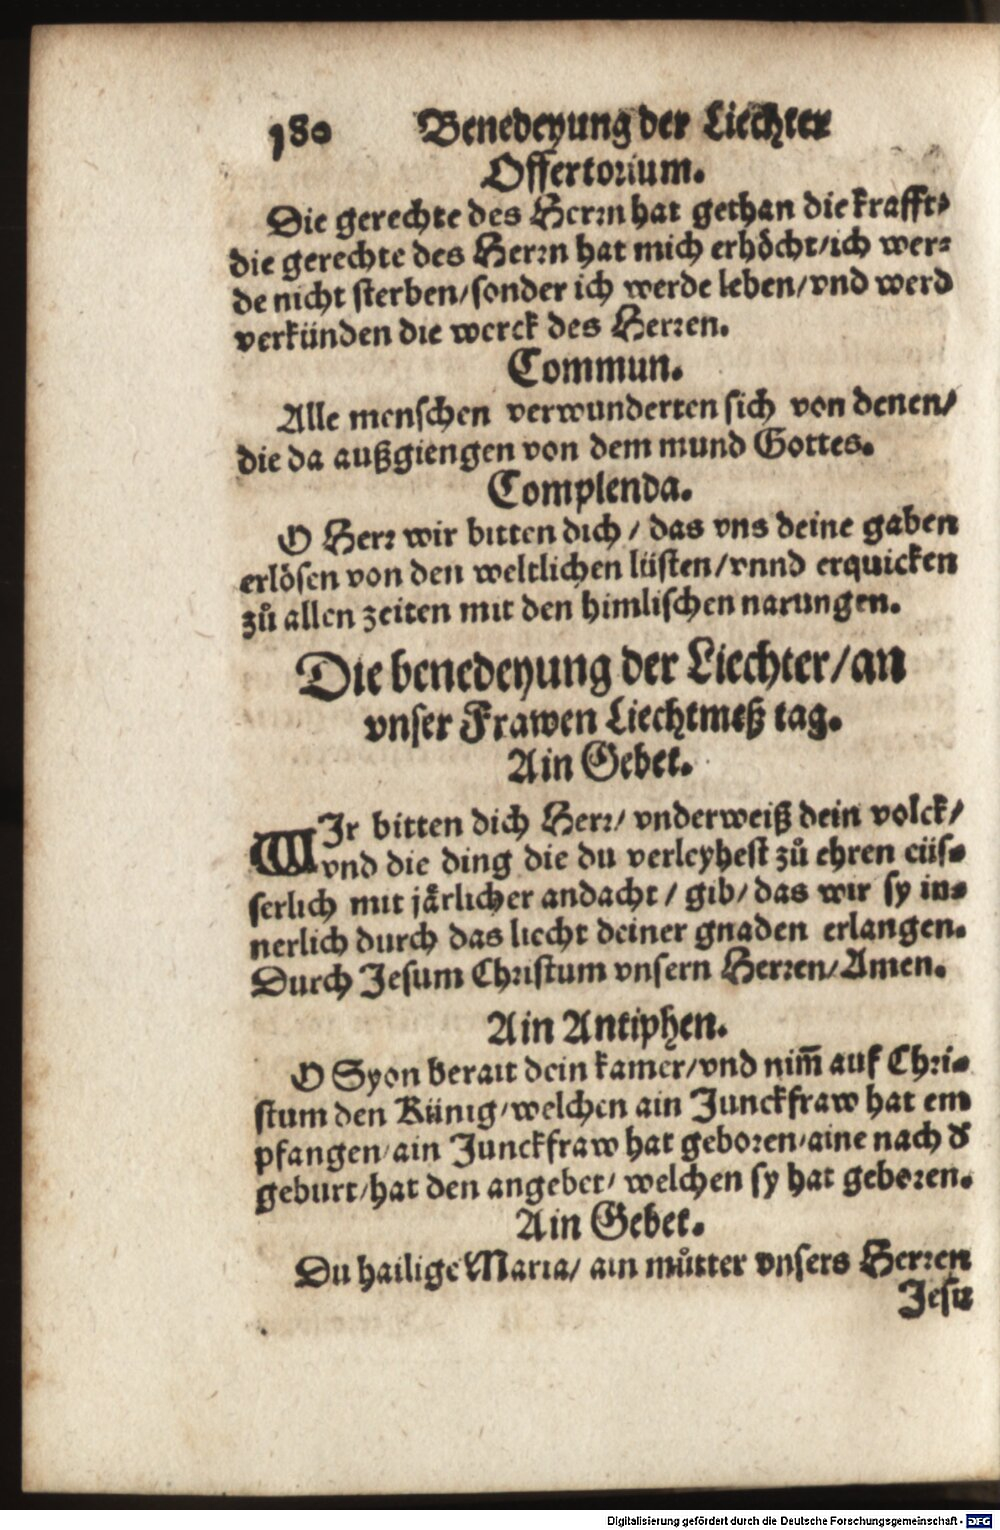 180 Benedeyung der Liechter
Offertorium.
Die gerechte des Herrn hat gethan die krafft/
die gerechte des Herrn hat mich erhöcht/ich wer⸗
de nicht sterben/sonder ich werde leben/vnd werd
verkünden die werck des Herren.
Commun.
Alle menschen verwunderten sich von denen/
die da außgiengen von dem mund Gottes.
Complenda.
O Herr wir bitten dich / das vns deine gaben
erlösen von den weltlichen lüsten/vnnd erquicken
zů allen zeiten mit den himlischen narungen.
Die benedeyung der Liechter/an
vnser Frawen Liechtmeß tag.
Ain Gebet.
WIr bitten dich Herr/ vnderweiß dein volck/
vnd die ding die du verleyhest zů ehren eüs⸗
serlich mit järlicher andacht / gib/ das wir sy in⸗
nerlich durch das liecht deiner gnaden erlangen.
Durch Jesum Christum vnsern Herren/Amen.
Ain Antiphen.
O Syon berait dein kamer/vnd nim̃ auf Chri⸗
stum den Künig/welchen ain Junckfraw hat em
pfangen/ain Junckfraw hat geboren/aine nach d̓
geburt/hat den angebet/ welchen sy hat geboren.
Ain Gebet.
Du hailige Maria/ ain můtter vnsers Herren
Jesu
Digitalisierung gefördert durch die Deutsche Forschungsgemeinschaft - DFG